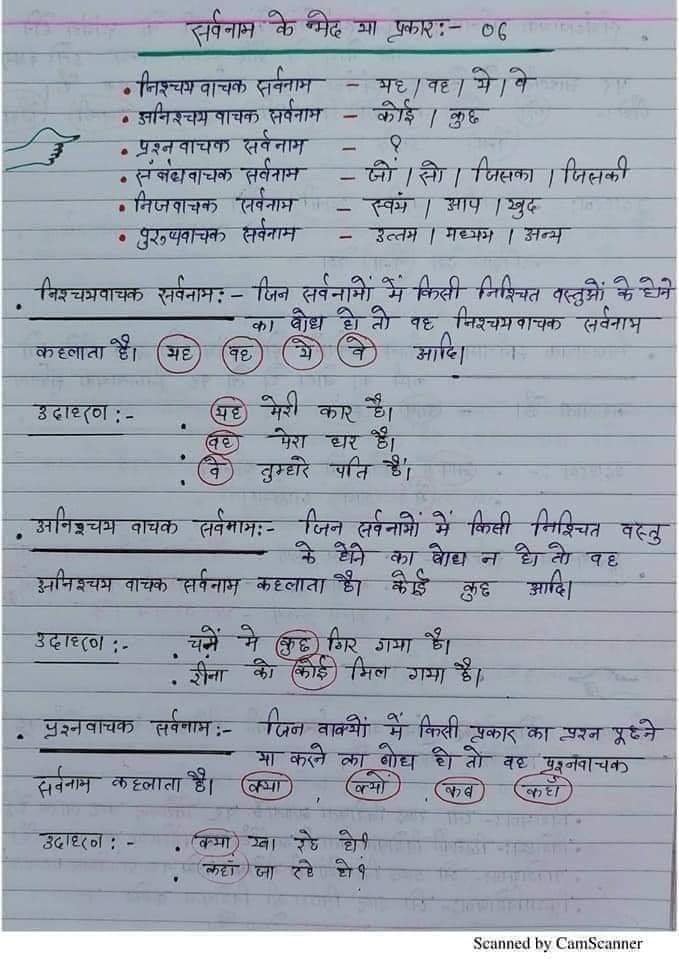 सर्वनाम के भेद या प्रकार:- 06
• निश्चयवाचक सर्वनाम - यह / वह / ये / वे
• अनिश्चयवाचक सर्वनाम - कोई / कुछ
• प्रश्नवाचक सर्वनाम - ?
• संबंधवाचक सर्वनाम - जो / सो / जिसका / जिसकी
• निजवाचक सर्वनाम - स्वयं / आप / खुद
• पुरुषवाचक सर्वनाम - उत्तम / मध्यम / अन्य
• निश्चयवाचक सर्वनाम:- जिन सर्वनामों में किसी निश्चित वस्तुओं के होने
का बोध हो तो वह निश्चयवाचक सर्वनाम
कहलाता है। यह वह ये वे आदि।
उदाहरण :- • यह मेरी कार है।
• वह मेरा घर है।
• वे तुम्हारे पति हैं।
• अनिश्चय वाचक सर्वनाम:- जिन सर्वनामों में किसी निश्चित वस्तु
के होने का बोध न हो तो वह
अनिश्चय वाचक सर्वनाम कहलाता है। कोई कुछ आदि।
उदाहरण :- • चने में कुछ गिर गया है।
• रीना को कोई मिल गया है।
• प्रश्नवाचक सर्वनाम:- जिन वाक्यों में किसी प्रकार का प्रश्न पूछने
या करने का बोध हो तो वह प्रश्नवाचक
सर्वनाम कहलाता है। क्या , क्यों कब कहाँ
उदाहरण :- • क्या खा रहे हो?
• कहां जा रहे हो?
Scanned by CamScanner